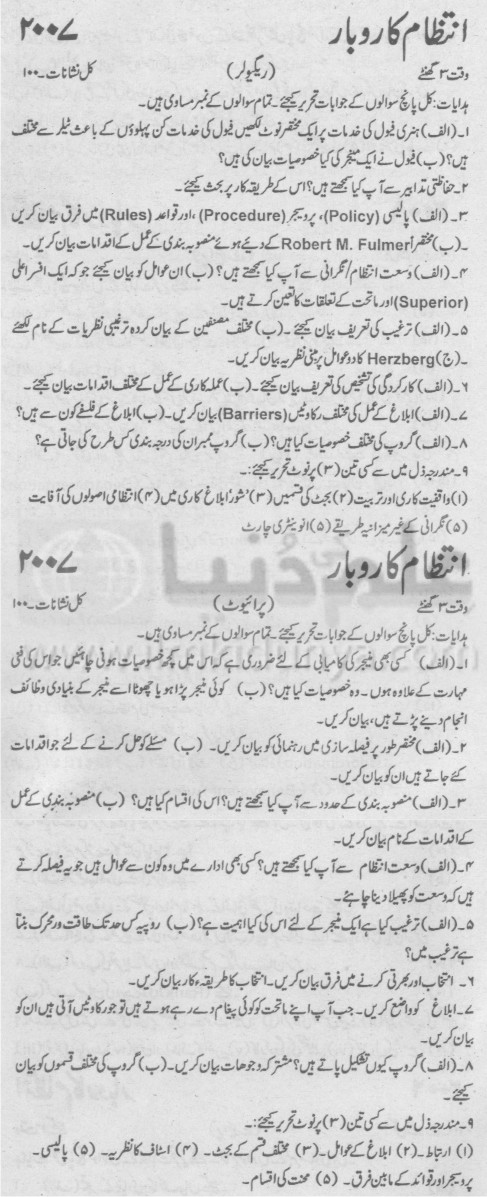 انتظام کاروبار ۲۰۰۷
وقت ۳ گھنٹے (ریگیولر) کل نشانات۔۱۰۰
ہدایات: کل پانچ سوالوں کے جوابات تحریر کیجئے۔ تمام سوالوں کے نمبر مساوی ہیں۔
۱۔ (الف) ہنری فیول کی خدمات پر ایک مختصر نوٹ لکھیں فیول کی خدمات کن پہلوؤں کے باعث ٹیلر سے مختلف
ہیں؟ (ب) فیول نے ایک منیجر کی کیا خصوصیات بیان کی ہیں؟
۲۔ حفاظتی تدابیر سے آپ کیا سمجھتے ہیں؟ اس کے طریقہ کار پر بحث کیجئے۔
۳۔ (الف) پالیسی (Policy)، پرویجر (Procedure)، اور قواعد (Rules) میں فرق بیان کریں
۔ (ب) مختصراً Robert M. Fulmer کے دیئے ہوئے منصوبہ بندی کے عمل کے اقدامات بیان کریں۔
۴۔ (الف) وسعت انتظام/نگرانی سے آپ کیا سمجھتے ہیں؟ (ب) ان عوامل کو بیان کیجئے جو کہ ایک افسر اعلی
(Superior) اور ماتحت کے تعلقات کا تعین کرتے ہیں۔
۵۔ (الف) ترغیب کی تعریف بیان کیجئے۔ (ب) مختلف مصنفین کے بیان کردہ ترغیبی نظریات کے نام لکھئے
۔ (ج) Herzberg کا دو عوامل پر مبنی نظریہ بیان کریں۔
۶۔ (الف) کارکردگی کی تشخیص کی تعریف بیان کیجئے۔ (ب) عملہ کاری کے عمل کے مختلف اقدامات بیان کیجئے۔
۷۔ (الف) ابلاغ کے عمل کی مختلف رکاوٹیں (Barriers) بیان کریں۔ (ب) ابلاغ کے فلسفے کون سے ہیں؟
۸۔ (الف) گروپ کی مختلف خصوصیات کیا ہیں؟ (ب) گروپ ممبران کی درجہ بندی کس طرح کی جاتی ہے؟
۹۔ مندرجہ ذیل میں سے کسی تین (۳) پر نوٹ تحریر کیجئے:۔
(۱) واقفیت کاری اور تربیت (۲) بجٹ کی قسمیں (۳) 'شور' ابلاغ کاری میں (۴) انتظامی اصولوں کی آفاقیت
(۵) نگرانی کے غیر میزانیہ طریقے (۵) انوینٹری چارٹ
انتظام کاروبار ۲۰۰۷
وقت ۳ گھنٹے (پرائیوٹ) کل نشانات۔۱۰۰
ہدایات: کل پانچ سوالوں کے جوابات تحریر کیجئے۔ تمام سوالوں کے نمبر مساوی ہیں۔
۱۔ (الف) کسی بھی منیجر کی کامیابی کے لئے ضروری ہے کہ اس میں کچھ خصوصیات ہونی چائیں جو اس کی فنی
مہارت کے علاوہ ہوں۔ وہ خصوصیات کیا ہیں؟ (ب) کوئی منیجر بڑا ہو یا چھوٹا اسے منیجر کے بنیادی وظائف
انجام دینے پڑتے ہیں، بیان کریں۔
۲۔ (الف) مختصر طور پر فیصلہ سازی میں رہنمائی کو بیان کریں۔ (ب) مسئلے کو حل کرنے کے لئے جو اقدامات
کئے جاتے ہیں ان کو بیان کریں۔
۳۔ (الف) منصوبہ بندی کے حدود سے آپ کیا سمجھتے ہیں؟ اس کی اقسام کیا ہیں؟ (ب) منصوبہ بندی کے عمل
کے اقدامات کے نام بیان کریں۔
۴۔ (الف) وسعت انتظام سے آپ کیا سمجھتے ہیں؟ کسی بھی ادارے میں وہ کون سے عوامل ہیں جو یہ فیصلہ کرتے
ہیں کہ وسعت کو پھیلا دینا چاہئے۔
۵۔ (الف) ترغیب کیا ہے ایک منیجر کے لئے اس کی کیا اہمیت ہے؟ (ب) روپیہ کس حد تک طاقت ور محرک بنتا
ہے ترغیب میں؟
۶۔ انتخاب اور بھرتی کرنے میں فرق بیان کریں۔ انتخاب کا طریقہ کار بیان کریں۔
۷۔ ابلاغ کو واضع کریں۔ جب آپ اپنے ماتحت کو کوئی پیغام دے رہے ہوتے ہیں تو جو رکاوٹیں آتی ہیں ان کو
بیان کریں۔
۸۔ (الف) گروپ کیوں تشکیل پاتے ہیں؟ مشترکہ وجوہات بیان کریں۔ (ب) گروپ کی مختلف قسموں کو بیان
کیجئے۔
۹۔ مندرجہ ذیل میں سے کسی تین (۳) پر نوٹ تحریر کیجئے:۔
(۱) ارتباط۔ (۲) ابلاغ کے عوامل۔ (۳) مختلف قسم کے بجٹ۔ (۴) اسٹاف کا نظریہ۔ (۵) پالیسی۔
پرویجر اور قوائد کے مابین فرق۔ (۵) محنت کی اقسام۔